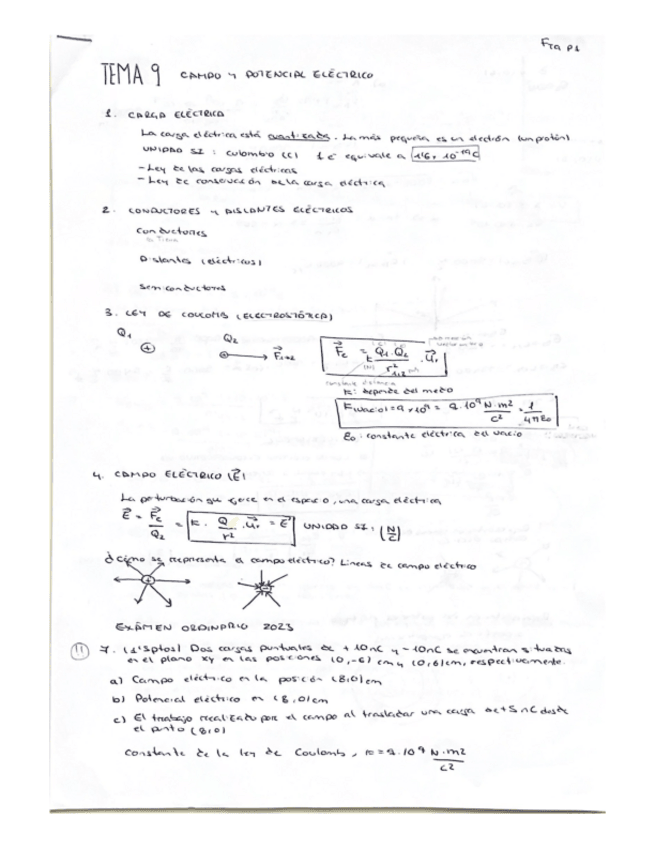 Fra P1
TEMA 9 CAMPO Y POTENCIAL ELÉCTRICO
1. CARGA ELÉCTRICA
La carga eléctrica está cuantizada. La más pequeña es un electrón (un protón)
UNIDAD SI: Culombio (C) 1 e⁻ equivale a 1'6 x 10⁻¹⁹C
- Ley de las cargas eléctricas
- Ley de conservación de la carga eléctrica
2. CONDUCTORES Y AISLANTES ELÉCTRICOS
Conductores
Aislantes (eléctricos)
Semiconductores
3. LEY DE COULOMB (ELECTROSTÁTICA)
Q1 Q2 F1→2
Fc = k Q1·Q2 / r²1,2 · ur
constante distancia
K: depende del medio
K(vacío) = 9 x 10⁹ = 9·10⁹ N·m²/C² = 1/4πε0
ε0: constante eléctrica del vacío
4. CAMPO ELÉCTRICO (E)
La perturbación que ejerce en el espacio, una carga eléctrica
E = Fc/Q2 = k · Q/r² · ur = E UNIDAD SI: (N/C)
¿Cómo se representa el campo eléctrico? Líneas de campo eléctrico
EXÁMEN ORDINARIO 2023
11 7. (1'5ptos) Dos cargas puntuales de +10nC y -10nC se encuentran situadas
en el plano xy en las posiciones (0,-6) cm y (0,6)cm, respectivamente.
a) Campo eléctrico en la posición (8,0)cm
b) Potencial eléctrico en (8,0)cm
c) El trabajo realizado por el campo al trasladar una carga de +5nC desde
el punto (8,0)
Constante de la ley de Coulomb, k = 9·10⁹ N·m²/C²